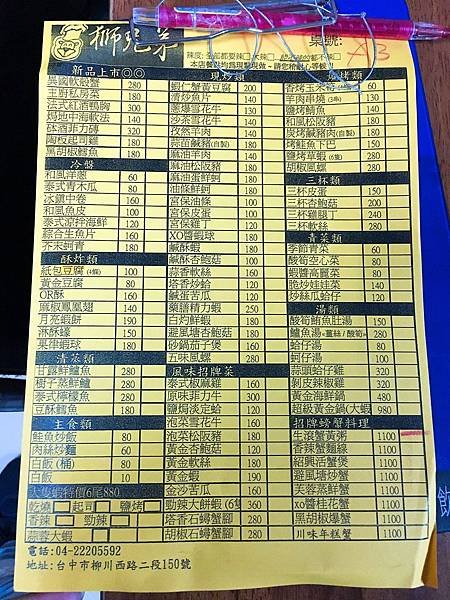 桌號:
辣度:全部都要辣□ 大辣□
本店餐點均為現點現做,請您稍耐心等候!
新品上市◎◎
異國軟殼蟹 280
主廚私房菜 180
法式紅酒鴨胸 300
焗地中海軟法 140
砵酒菲力磚 320
陶板起司雞 180
黑胡椒鱈魚 180
冷盤
和風洋蔥 60
泰式青木瓜 80
冰鎮中卷 160
和風魚皮 100
泰式涼拌海鮮 120
綜合生魚片 160
芥末蚵青 180
酥炸類
紙包豆腐(4條) 100
黃金豆腐 80
OR酥 160
麻椒鳳凰翅 140
月亮蝦餅 190
淋酥蠔 150
果律蝦球 180
清蒸類
甘露鮮鱸魚 280
樹子蒸鮮鱸 280
泰式檸檬魚 280
豆酥鱈魚 180
主食類
鮭魚炒飯 80
肉絲炒麵 60
白飯(桶) 80
白飯 10
大隻蝦特價6尾880
乾燒□ 起司□ 鹽烤□
香辣□ 勁辣□
蒜蓉大蝦
現炒類
蝦仁蟹黃豆腐 200
清炒魚片 140
蔥爆雪花牛 130
沙茶雪花牛 140
孜然羊肉 140
蒜苗鹹豬肉(自製) 180
麻油羊肉 140
麻油松阪豬 180
麻油蛋鮮蚵 180
油條鮮蚵 180
宮保油條 100
宮保皮蛋 100
宮保雞丁 120
XO醬蝦球 180
鹹酥蝦 180
蒜香軟絲 180
塔香炒蛤 120
鹹蛋苦瓜 120
藥膳精力蝦 250
白灼鮮蝦 180
避風塘杏鮑菇 180
砂鍋茄子煲 160
五味風螺 280
風味招牌菜
泰式椒麻雞 160
原味菲力牛 300
鹽焗淡定蛤 120
泡菜雪花牛 160
泡菜松阪豬 180
黃金杏鮑菇 160
黃金軟絲 180
黃金皮蛋 180
金沙苦瓜 160
勁辣大餅蝦(6隻 360
塔香石蟳蟹腳 240
胡椒石蟳蟹腳 240
燒烤類
香烤玉米筍 60
羊肉串燒(3串) 130
鹽烤鯖魚 140
和風松阪豬 180
炭烤鹹豬肉(自製) 180
烤鮭魚下巴 150
鹽烤草蝦(6隻) 280
胡椒風螺 280
三杯類
三杯皮蛋 150
三杯杏鮑菇 200
三杯雞腿丁 240
三杯軟絲 280
青菜類
季節青菜 60
酸筍空心菜 80
蝦醬高麗菜 80
脆炒娃娃菜 140
炒絲瓜蛤仔 120
湯類
酸筍鮪魚肚湯 150
鱸魚湯=薑絲/酸筍= 280
蛤仔湯 80
蚵仔湯 80
蒜頭蛤仔雞 320
剝皮辣椒雞 320
黃金海鮮鍋 480
超級黃金鍋(大蝦 980
招牌螃蟹料理
生滾蟹黃粥 1100
香辣蟹麵線 1100
紹興活蟹煲 1100
避風塘炒蟹 1100
芙蓉蒸鮮蟹 1100
xo醬桂花蟹 1100
黑胡椒爆蟹 1100
川味年糕蟹 1100
電話:04-22205592
地址:台中市柳川西路二段150號
飲